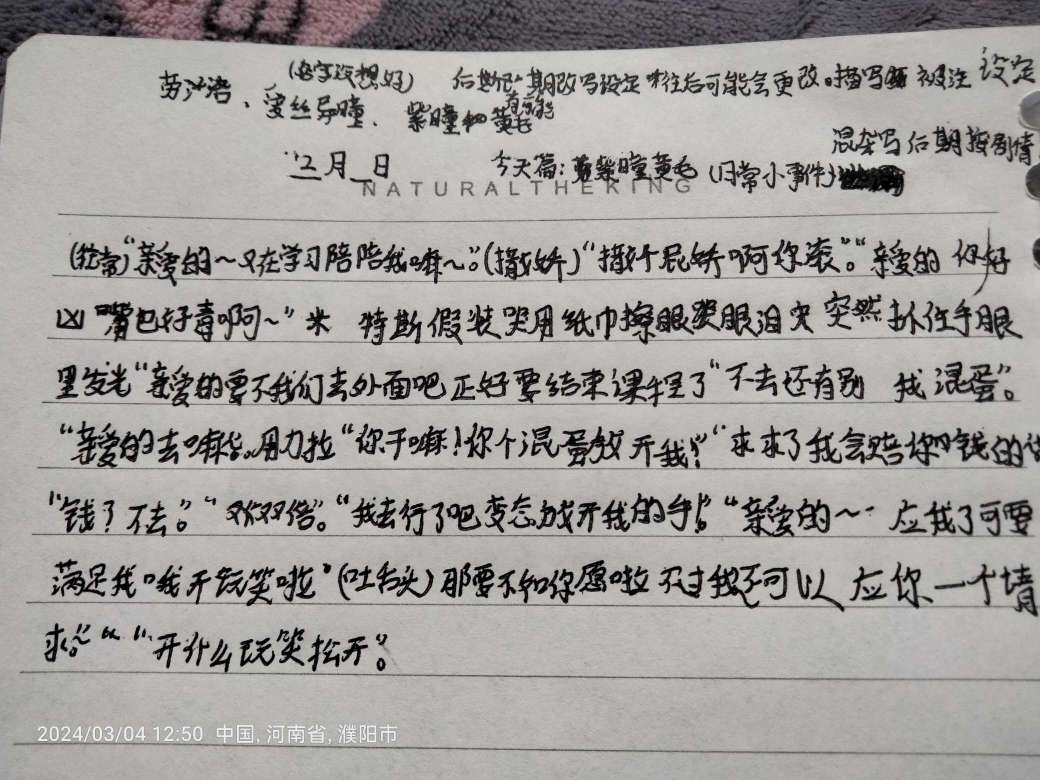 (名字没想好) 后期改写设定 往后可能会更改。描写 设定
异瞳、紫瞳和黄毛
有可能
混杂写后期按剧情
月 日 今天篇: 紫瞳黄毛 (日常小事件)
NATURALTHEKING
(日常) “亲爱的~又在学习陪陪我嘛~。(撒娇) “撒个屁娇啊你滚。” “亲爱的 你好
凶 嘴巴好毒啊~” 特斯假装哭用纸巾擦眼泪 突然抓住手眼
里发光 “亲爱的要不我们去外面吧正好要结束课程了” 不去还有别 我 混蛋”。
“亲爱的去嘛。用力拉 “你干嘛!你个混蛋放开我!” “求求了我会赔你钱的
“钱? 不去。” “双双倍”。 “我去行了吧变态放开我的手!。” “亲爱的~ 应我了可要
满足我哦开玩笑啦” (吐舌头) 那要不和你愿啦 不过我可以 应你一个请
求。~” “开什么玩笑松开”。
2024/03/04 12:50 中国,河南省,濮阳市